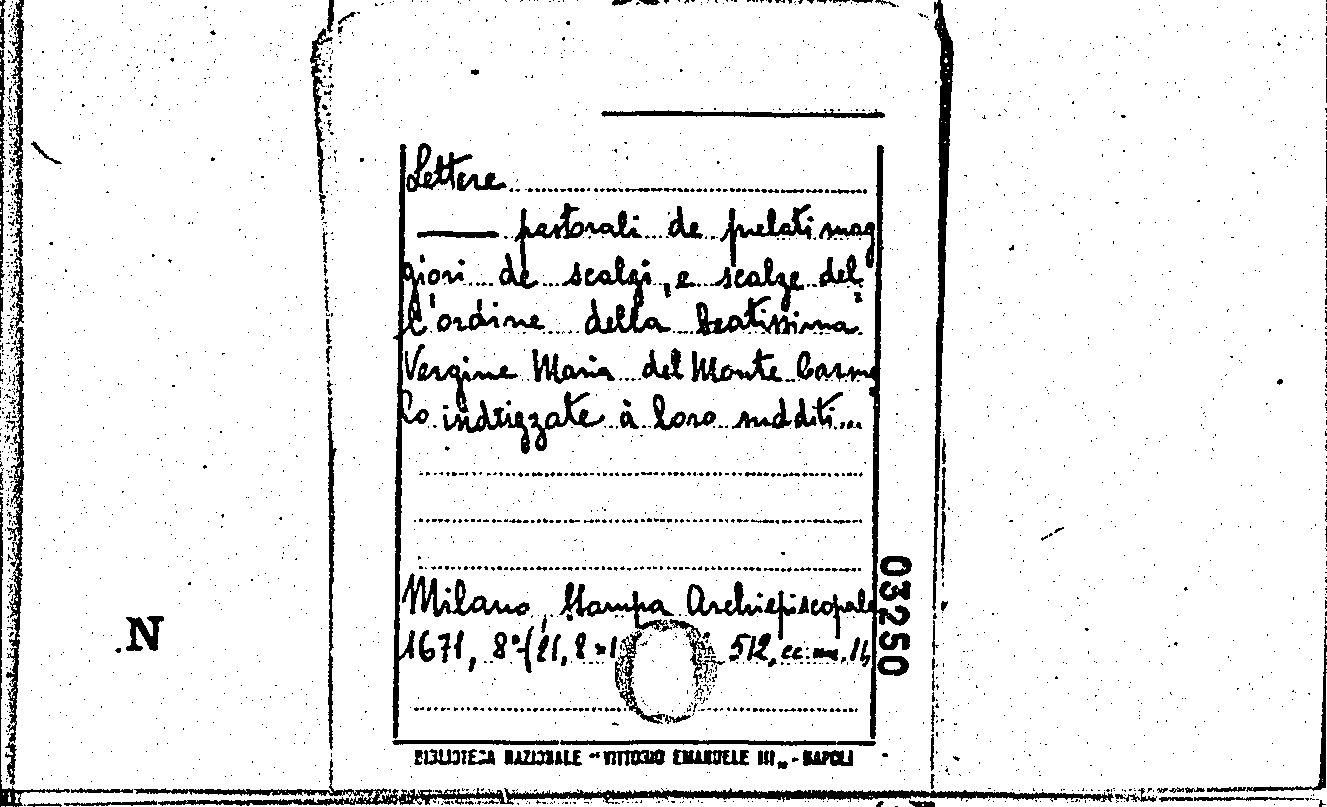 Lettere
pastorali de prelati mag
giori de scalzi, e scalze del
l'ordine della Beatissima
Vergine Maria del Monte Carme
lo indrizzate à loro sudditi...
Milano, Stampa Archiepiscopale
1671, 8° 512, cc. nn. 14
03250
N
BIBLIOTECA NAZIONALE "VITTORIO EMANUELE III" - NAPOLI